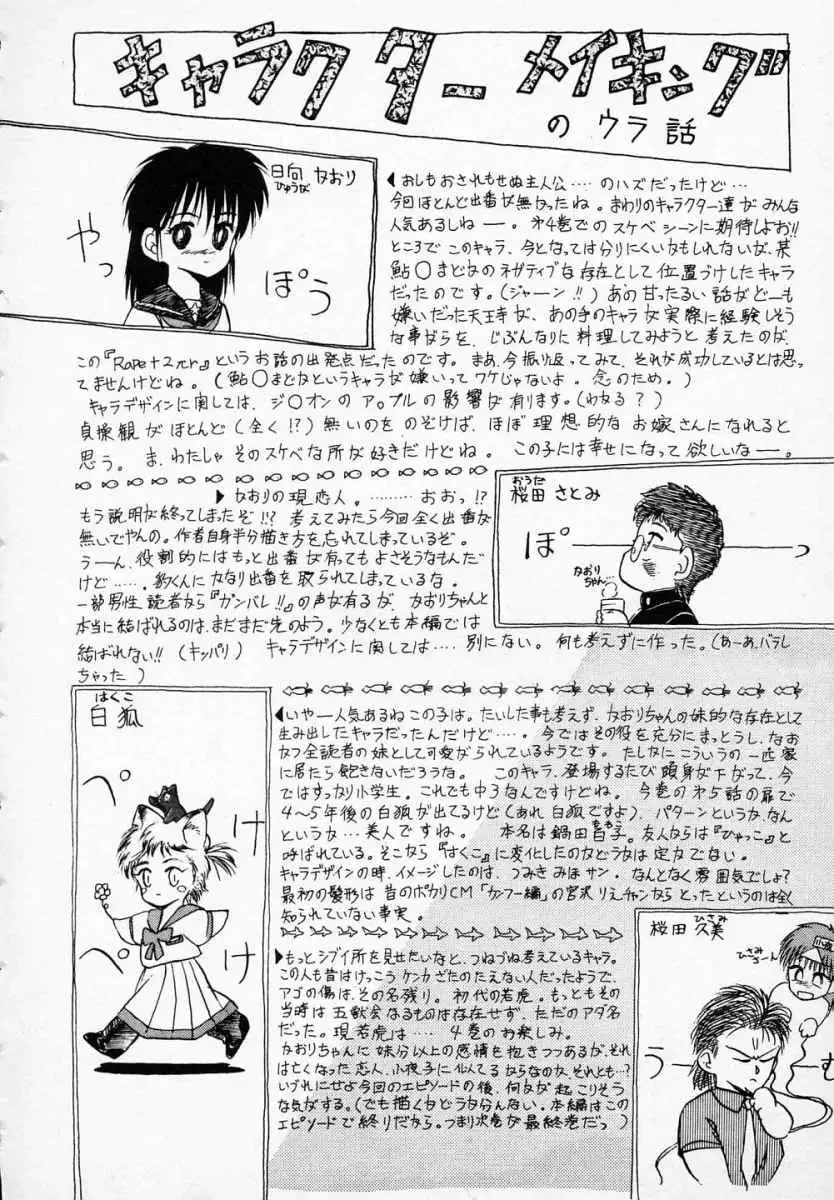 キャラクターメイキング
のウラ話
日向 かおり
ひゅうが
やっ
ぽう
おしもおされもせぬ主人公‥‥のハズだったけど‥‥
今回ほとんど出番が無かったね。まわりのキャラクター達がみんな
人気あるしねー。第4巻でのスケベシーンに期待しよお!!
ところでこのキャラ、今となっては分りにくいかもしれないが、某
鮎○まどかのネガティブな存在として位置づけしたキャラ
だったのです。(ジャーン!!) あの甘ったるい話がどーも
嫌いだった天王寺が、あの手のキャラが実際に経験しそう
な事がらを、じぶんなりに料理してみようと考えたのが、
この『Rape+2πr』というお話の出発点だったのです。まあ、今振り返ってみて、それが成功しているとは思っ
てませんけどね。(鮎○まどかというキャラが嫌いってワケじゃないよ。念のため。)
キャラデザインに関しては、ジ○オンのア○プルの影響が有ります。(わかる?)
貞操観がほとんど(全く!?)無いのをのぞけば、ほぼ理想的なお嫁さんになれると
思う。ま、わたしゃそのスケベな所が好きだけどね。この子には幸せになって欲しいなー。
おうた
桜田 さとみ
ぽー
っ
かおり
ちゃん‥
かおりの現恋人。‥‥‥おおっ!?
もう説明が終ってしまったぞ!!? 考えてみたら今回全く出番が
無いでやんの。作者自身半分描き方を忘れてしまっているぞ。
うーん、役割的にはもっと出番が有ってもよさそうなもんだ
けど‥‥、豹くんにかなり出番を取られてしまっているな。
一部男性読者から『ガンバレ!!』の声が有るが、かおりちゃんと
本当に結ばれるのは、まだまだ先のよう。少なくとも本編では
結ばれない!! (キッパリ) キャラデザインに関しては‥‥別にない。何も考えずに作った。(あーあ、バラし
ちゃった)
はくこ
白狐
ぺ
け
ぺ
け
いやー人気あるねこの子は。たいした事も考えず、かおりちゃんの妹的な存在として
生み出したキャラだったんだけど‥‥。今ではその役を充分にまっとうし、なお
かつ全読者の妹として可愛がられているようです。たしかにこういうの一匹家
に居たら飽きないだろうな。このキャラ、登場するたび頭身が下がって、今
ではすっかり小学生。これでも中3なんですけどね。今巻の第5話の扉で
4〜5年後の白狐が出てるけど(あれ白狐ですよ)、パターンというか、なん
というか‥‥美人ですね。本名は鍋田百子。友人からは『ひゃっこ』と
ももこ
呼ばれている。そこから『はくこ』に変化したのかどうかは定かでない。
キャラデザインの時、イメージしたのは、つみきみほサン。なんとなく雰囲気でしょ?
最初の髪形は昔のポカリCM「カンフー編」の宮沢りえチャンからとったというのは全く
知られていない事実。
ひさみ
桜田 久美
ひさみ
ちゃーん
うー
む
もっとシブイ所を見せたいなと、つねづね考えているキャラ。
この人も昔はけっこうケンカざたのたえない人だったようで、
アゴの傷は、その名残り。初代の若虎。もっともその
当時は五獣会なるものは存在せず、ただのアダ名
だった。現若虎は‥‥4巻のお楽しみ。
かおりちゃんに妹分以上の感情を抱きつつあるが、それ
は亡くなった恋人、小夜子に似てるからなのか、それとも‥?
いづれにせよ今回のエピソードの後、何かが起こりそう
な気がする。(でも描くかどうか分んない。本編はこの
エピソードで終りだから。つまり次巻が最終巻だっ)